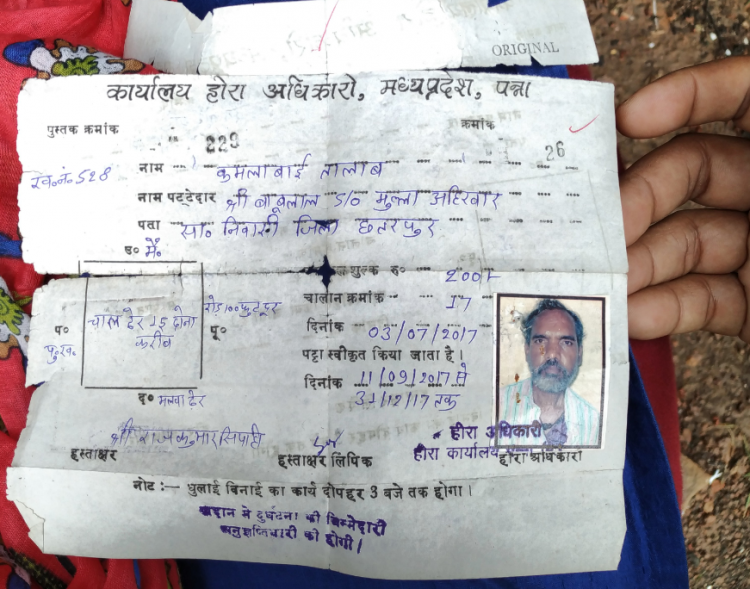 ORIGINAL
कार्यालय हीरा अधिकारी, मध्यप्रदेश, पन्ना
पुस्तक क्रमांक 229 क्रमांक 26
ख.नं. 528 नाम कमलाबाई तालाब
नाम पट्टेदार श्री बाबूलाल S/o मुल्ला अहिरवार
पता सा० निवासी जिला छतरपुर
उ० में.
शुल्क रु० 200/-
चालान क्रमांक 17
रोड 100 फुट दूर
चाल ढेर 15 दोना
करीब
प०
पु.ख.
पू०
दिनांक 03/07/2017
पट्टा स्वीकृत किया जाता है।
दिनांक 11/09/2017 से
31/12/17 तक
द० मलवा ढेर
श्री राजकुमार सिपाही
हीरा अधिकारी
हीरा कार्यालय
हस्ताक्षर हस्ताक्षर लिपिक हीरा अधिकारी
नोट :— धुलाई बिनाई का कार्य दोपहर 3 बजे तक होगा।
खदान में दुर्घटना की जिम्मेदारी
अनुज्ञप्तिधारी की होगी।